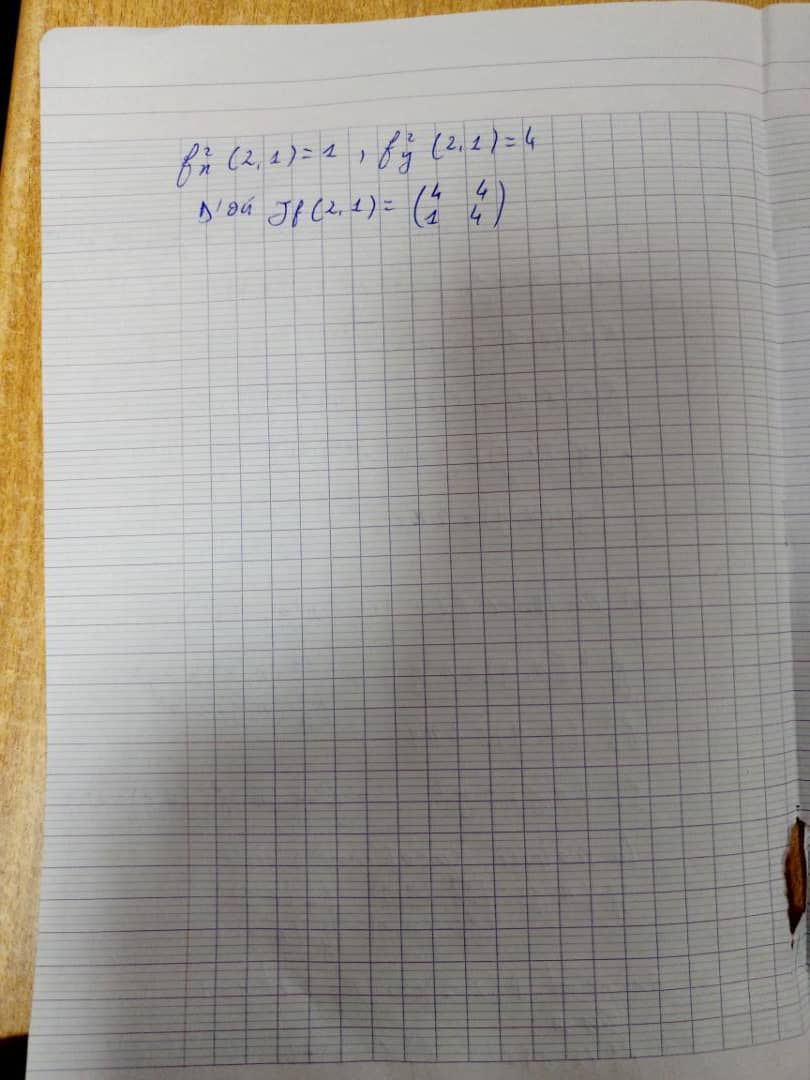 f²ₓ (2,1) = 1 , f²ᵧ (2,1) = 4
D'où Jf(2,1) = (4 4
1 4)